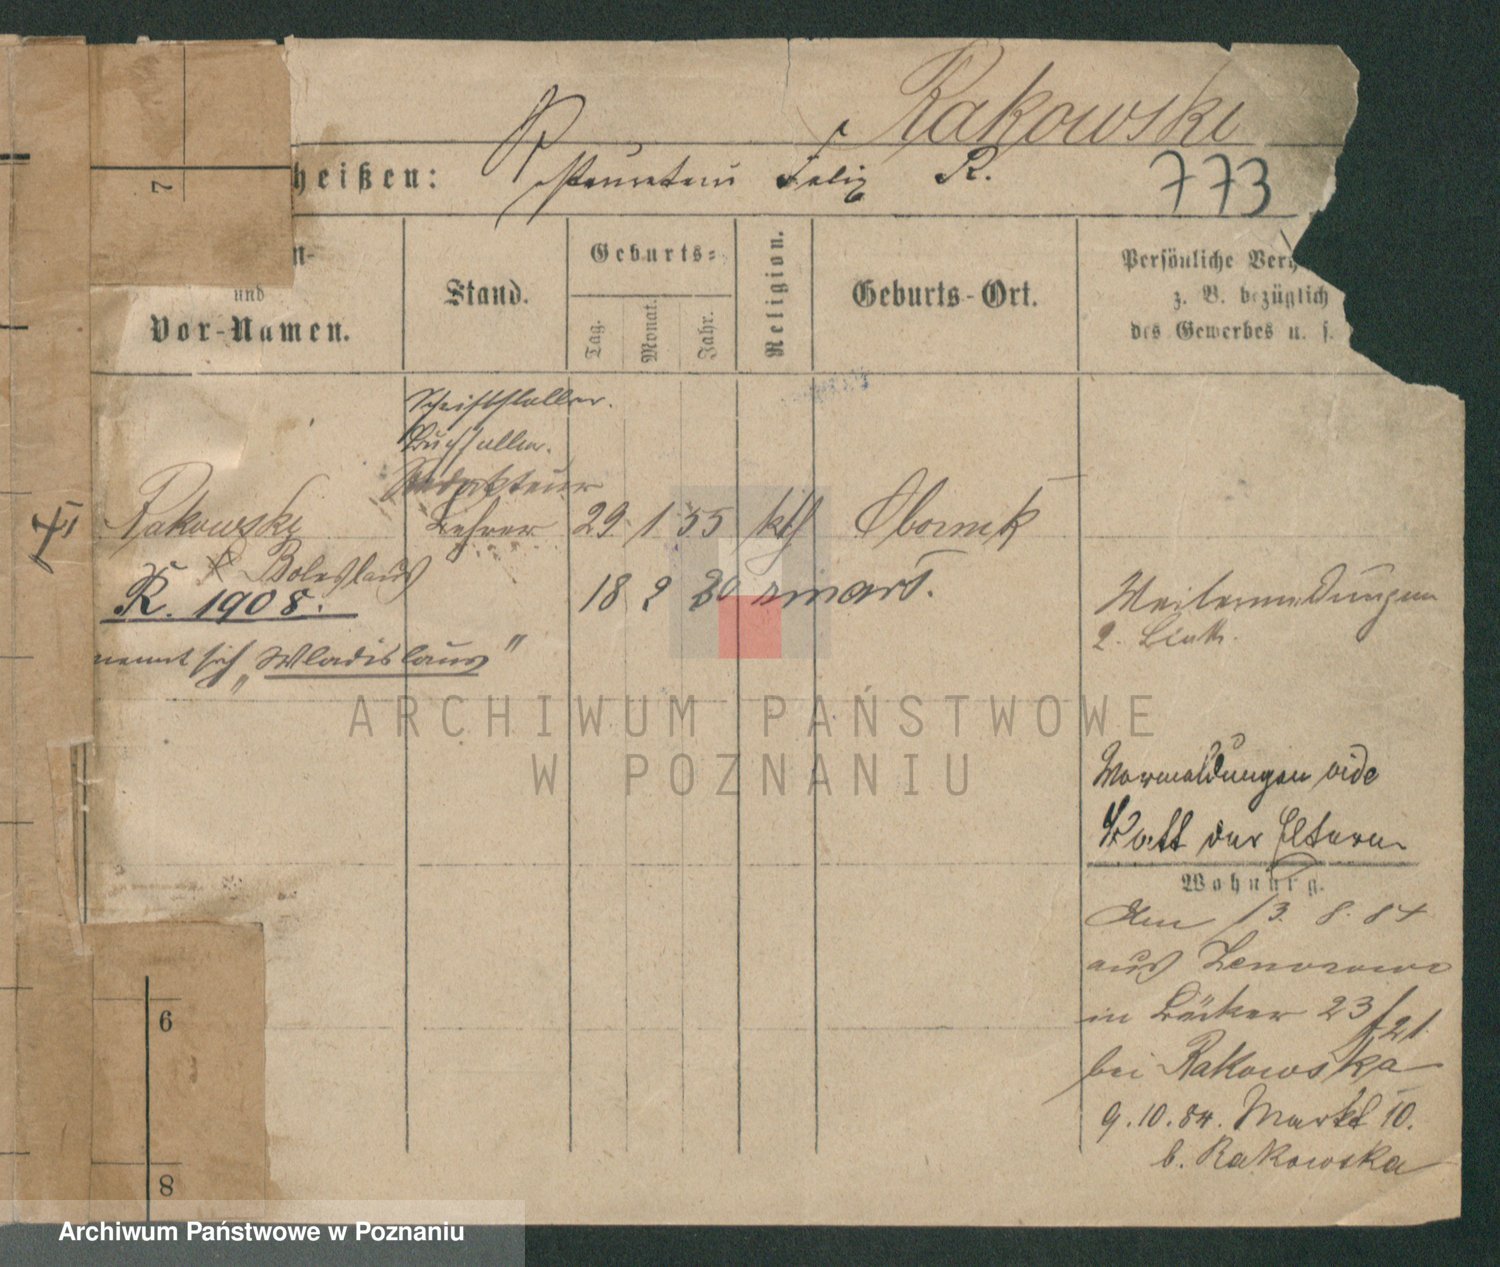 Rakowski
heißen: Felix R. 773
n-
und
Vor-Namen.
Stand.
Geburts-
Tag.
Monat.
Jahr.
Religion.
Geburts-Ort.
Persönliche Ver
z. B. bezüglich
des Gewerbes u. s.
Schriftsteller.
Buchhalter.
Redakteur
Rakowski Lehrer 29. 1. 55 kth Obornik
Boleslaus
R. 1908. 18 2 80
nennt sich „Wladislaus"
Weitermeldungen
2. Blatt.
Vormeldungen vide
Blatt der Eltern
Wohnung.
Am 13. 8. 84
aus
in Bäcker 23/21.
bei Rakowska
9. 10. 84. Markt 10.
b. Rakowska
7
6
8
ARCHIWUM PAŃSTWOWE
W POZNANIU
Archiwum Państwowe w Poznaniu